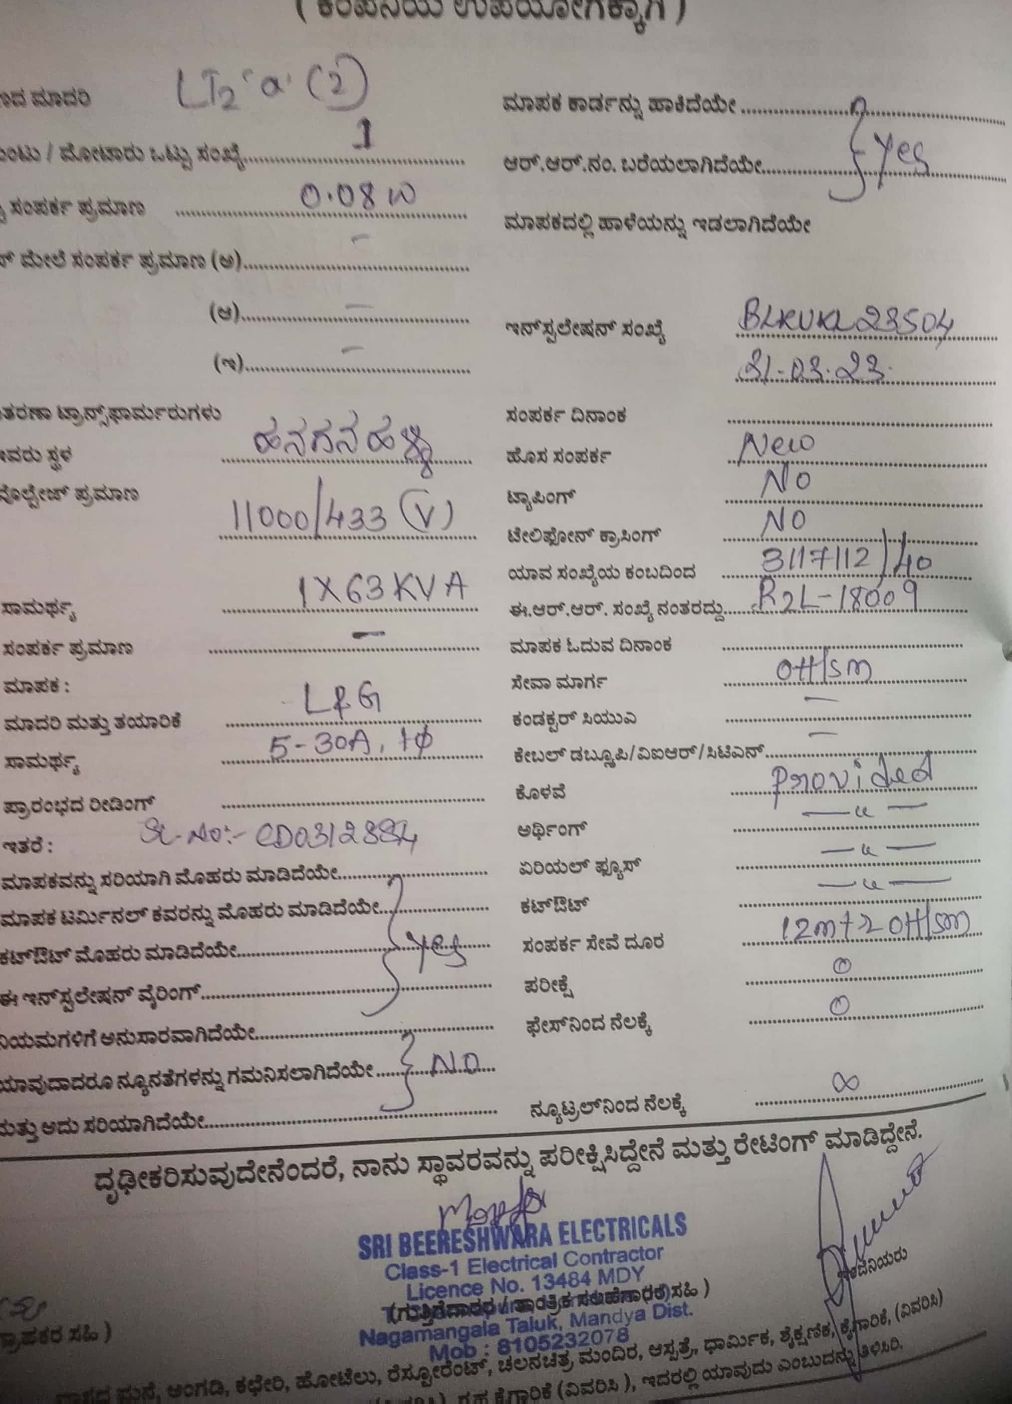 ( ಕಂಪನಿಯ ಉಪಯೋಗಕ್ಕಾಗಿ )
ಮಾದರಿ LT2 'a' (2)
ಮಾಪಕ ಕಾರ್ಡನ್ನು ಹಾಕಿದೆಯೇ
/ ಮೋಟಾರು ಒಟ್ಟು ಸಂಖ್ಯೆ 1
ಆರ್.ಆರ್.ನಂ. ಬರೆಯಲಾಗಿದೆಯೇ Yes
ಸಂಪರ್ಕ ಪ್ರಮಾಣ 0.08 W
ಮಾಪಕದಲ್ಲಿ ಹಾಳೆಯನ್ನು ಇಡಲಾಗಿದೆಯೇ
ಮೇಲೆ ಸಂಪರ್ಕ ಪ್ರಮಾಣ (ಅ) –
(ಆ) –
ಇನ್‌ಸ್ಟಲೇಷನ್ ಸಂಖ್ಯೆ BLKUKL23504
(ಇ) –
31-03-23
ಟ್ರಾನ್ಸ್‌ಫಾರ್ಮರುಗಳು
ಸಂಪರ್ಕ ದಿನಾಂಕ
ಇವರು ಸ್ಥಳ ಹನಗನಹಳ್ಳಿ
ಹೊಸ ಸಂಪರ್ಕ New
ವೋಲ್ಟೇಜ್ ಪ್ರಮಾಣ 11000/433 (V)
ಟ್ಯಾಪಿಂಗ್ NO
ಟೇಲಿಫೋನ್ ಕ್ರಾಸಿಂಗ್ NO
ಯಾವ ಸಂಖ್ಯೆಯ ಕಂಬದಿಂದ 3117112/40
ಸಾಮರ್ಥ್ಯ 1X63 KVA
ಈ.ಆರ್.ಆರ್. ಸಂಖ್ಯೆ ನಂತರದ್ದು R2L-18009
ಸಂಪರ್ಕ ಪ್ರಮಾಣ –
ಮಾಪಕ ಓದುವ ದಿನಾಂಕ
ಮಾಪಕ :
ಸೇವಾ ಮಾರ್ಗ OH/SM
ಮಾದರಿ ಮತ್ತು ತಯಾರಿಕೆ L&G
ಕಂಡಕ್ಟರ್ ಸಿಯುಎ –
ಸಾಮರ್ಥ್ಯ 5-30A, 1ϕ
ಕೇಬಲ್ ಡಬ್ಲ್ಯೂಪಿ/ವಿಐಆರ್/ಸಿಟಿಎಸ್ –
ಪ್ರಾರಂಭದ ರೀಡಿಂಗ್
ಕೊಳವೆ Provided
ಇತರೆ : Sl-No:-
ಅರ್ಥಿಂಗ್ —〃—
ಮಾಪಕವನ್ನು ಸರಿಯಾಗಿ ಮೊಹರು ಮಾಡಿದೆಯೇ
ಏರಿಯಲ್ ಫ್ಯೂಸ್ —〃—
ಮಾಪಕ ಟರ್ಮಿನಲ್ ಕವರನ್ನು ಮೊಹರು ಮಾಡಿದೆಯೇ
ಕಟ್‌ಔಟ್ —〃—
ಕಟ್‌ಔಟ್ ಮೊಹರು ಮಾಡಿದೆಯೇ Yes
ಸಂಪರ್ಕ ಸೇವೆ ದೂರ 12mtr OH/SM
ಈ ಇನ್‌ಸ್ಟಲೇಷನ್ ವೈರಿಂಗ್
ಪರೀಕ್ಷೆ 0
ನಿಯಮಗಳಿಗೆ ಅನುಸಾರವಾಗಿದೆಯೇ
ಫೇಸ್‌ನಿಂದ ನೆಲಕ್ಕೆ 0
ಯಾವುದಾದರೂ ನ್ಯೂನತೆಗಳನ್ನು ಗಮನಿಸಲಾಗಿದೆಯೇ NO
ಮತ್ತು ಅದು ಸರಿಯಾಗಿದೆಯೇ
ನ್ಯೂಟ್ರಲ್‌ನಿಂದ ನೆಲಕ್ಕೆ ∞
ದೃಢೀಕರಿಸುವುದೇನೆಂದರೆ, ನಾನು ಸ್ಥಾವರವನ್ನು ಪರೀಕ್ಷಿಸಿದ್ದೇನೆ ಮತ್ತು ರೇಟಿಂಗ್ ಮಾಡಿದ್ದೇನೆ.
SRI BEERESHWARA ELECTRICALS
Class-1 Electrical Contractor
Licence No. 13484 MDY
(ಗುತ್ತಿಗೆದಾರರ / ಸಹಿ )
Nagamangala Taluk, Mandya Dist.
Mob : 8105232078
ಗ್ರಾಹಕರ ಸಹಿ )
ಮನೆ, ಅಂಗಡಿ, ಕಛೇರಿ, ಹೋಟೆಲು, ರೆಸ್ಟೋರೆಂಟ್, ಚಲನಚಿತ್ರ ಮಂದಿರ, ಆಸ್ಪತ್ರೆ, ಧಾರ್ಮಿಕ, ಶೈಕ್ಷಣಿಕ, ಕೈಗಾರಿಕೆ, (ವಿವರಿಸಿ)
ಗೃಹ ಕೈಗಾರಿಕೆ (ವಿವರಿಸಿ ), ಇದರಲ್ಲಿ ಯಾವುದು ಎಂಬುದನ್ನು ತಿಳಿಸಿರಿ.